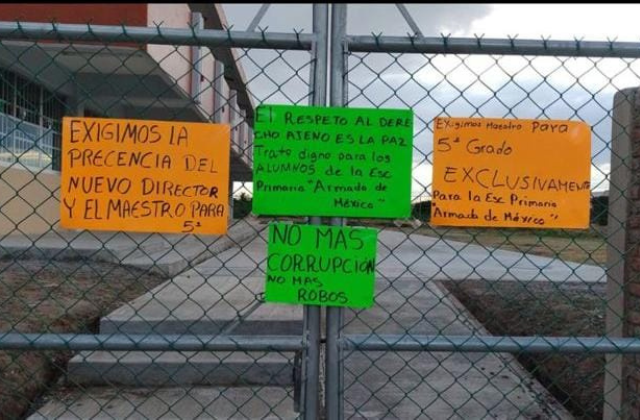 EXIGIMOS LA
PRECENCIA DEL
NUEVO DIRECTOR
Y EL MAESTRO PARA
5º
El RESPETO AL DERE
CHO AJENO ES LA PAZ
Trato digno para los
ALUMNOS de la Esc
Primaria "Armada de
México"
NO MAS
CORRUPCIÓN
NO MAS
ROBOS
Exigimos Maestro Para
5º Grado
EXCLUSIVAMENTE
Para la Esc Primaria
Armada de México"